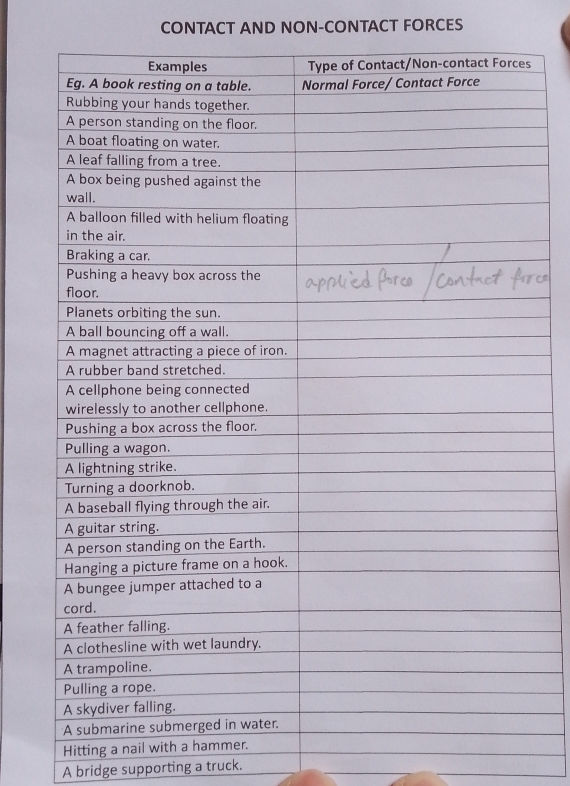 CONTACT AND NON-CONTACT FORCES
Examples Type of Contact/Non-contact Forces
Eg. A book resting on a table. Normal Force/ Contact Force
Rubbing your hands together.
A person standing on the floor.
A boat floating on water.
A leaf falling from a tree.
A box being pushed against the
wall.
A balloon filled with helium floating
in the air.
Braking a car.
Pushing a heavy box across the applied force / contact force
floor.
Planets orbiting the sun.
A ball bouncing off a wall.
A magnet attracting a piece of iron.
A rubber band stretched.
A cellphone being connected
wirelessly to another cellphone.
Pushing a box across the floor.
Pulling a wagon.
A lightning strike.
Turning a doorknob.
A baseball flying through the air.
A guitar string.
A person standing on the Earth.
Hanging a picture frame on a hook.
A bungee jumper attached to a
cord.
A feather falling.
A clothesline with wet laundry.
A trampoline.
Pulling a rope.
A skydiver falling.
A submarine submerged in water.
Hitting a nail with a hammer.
A bridge supporting a truck.